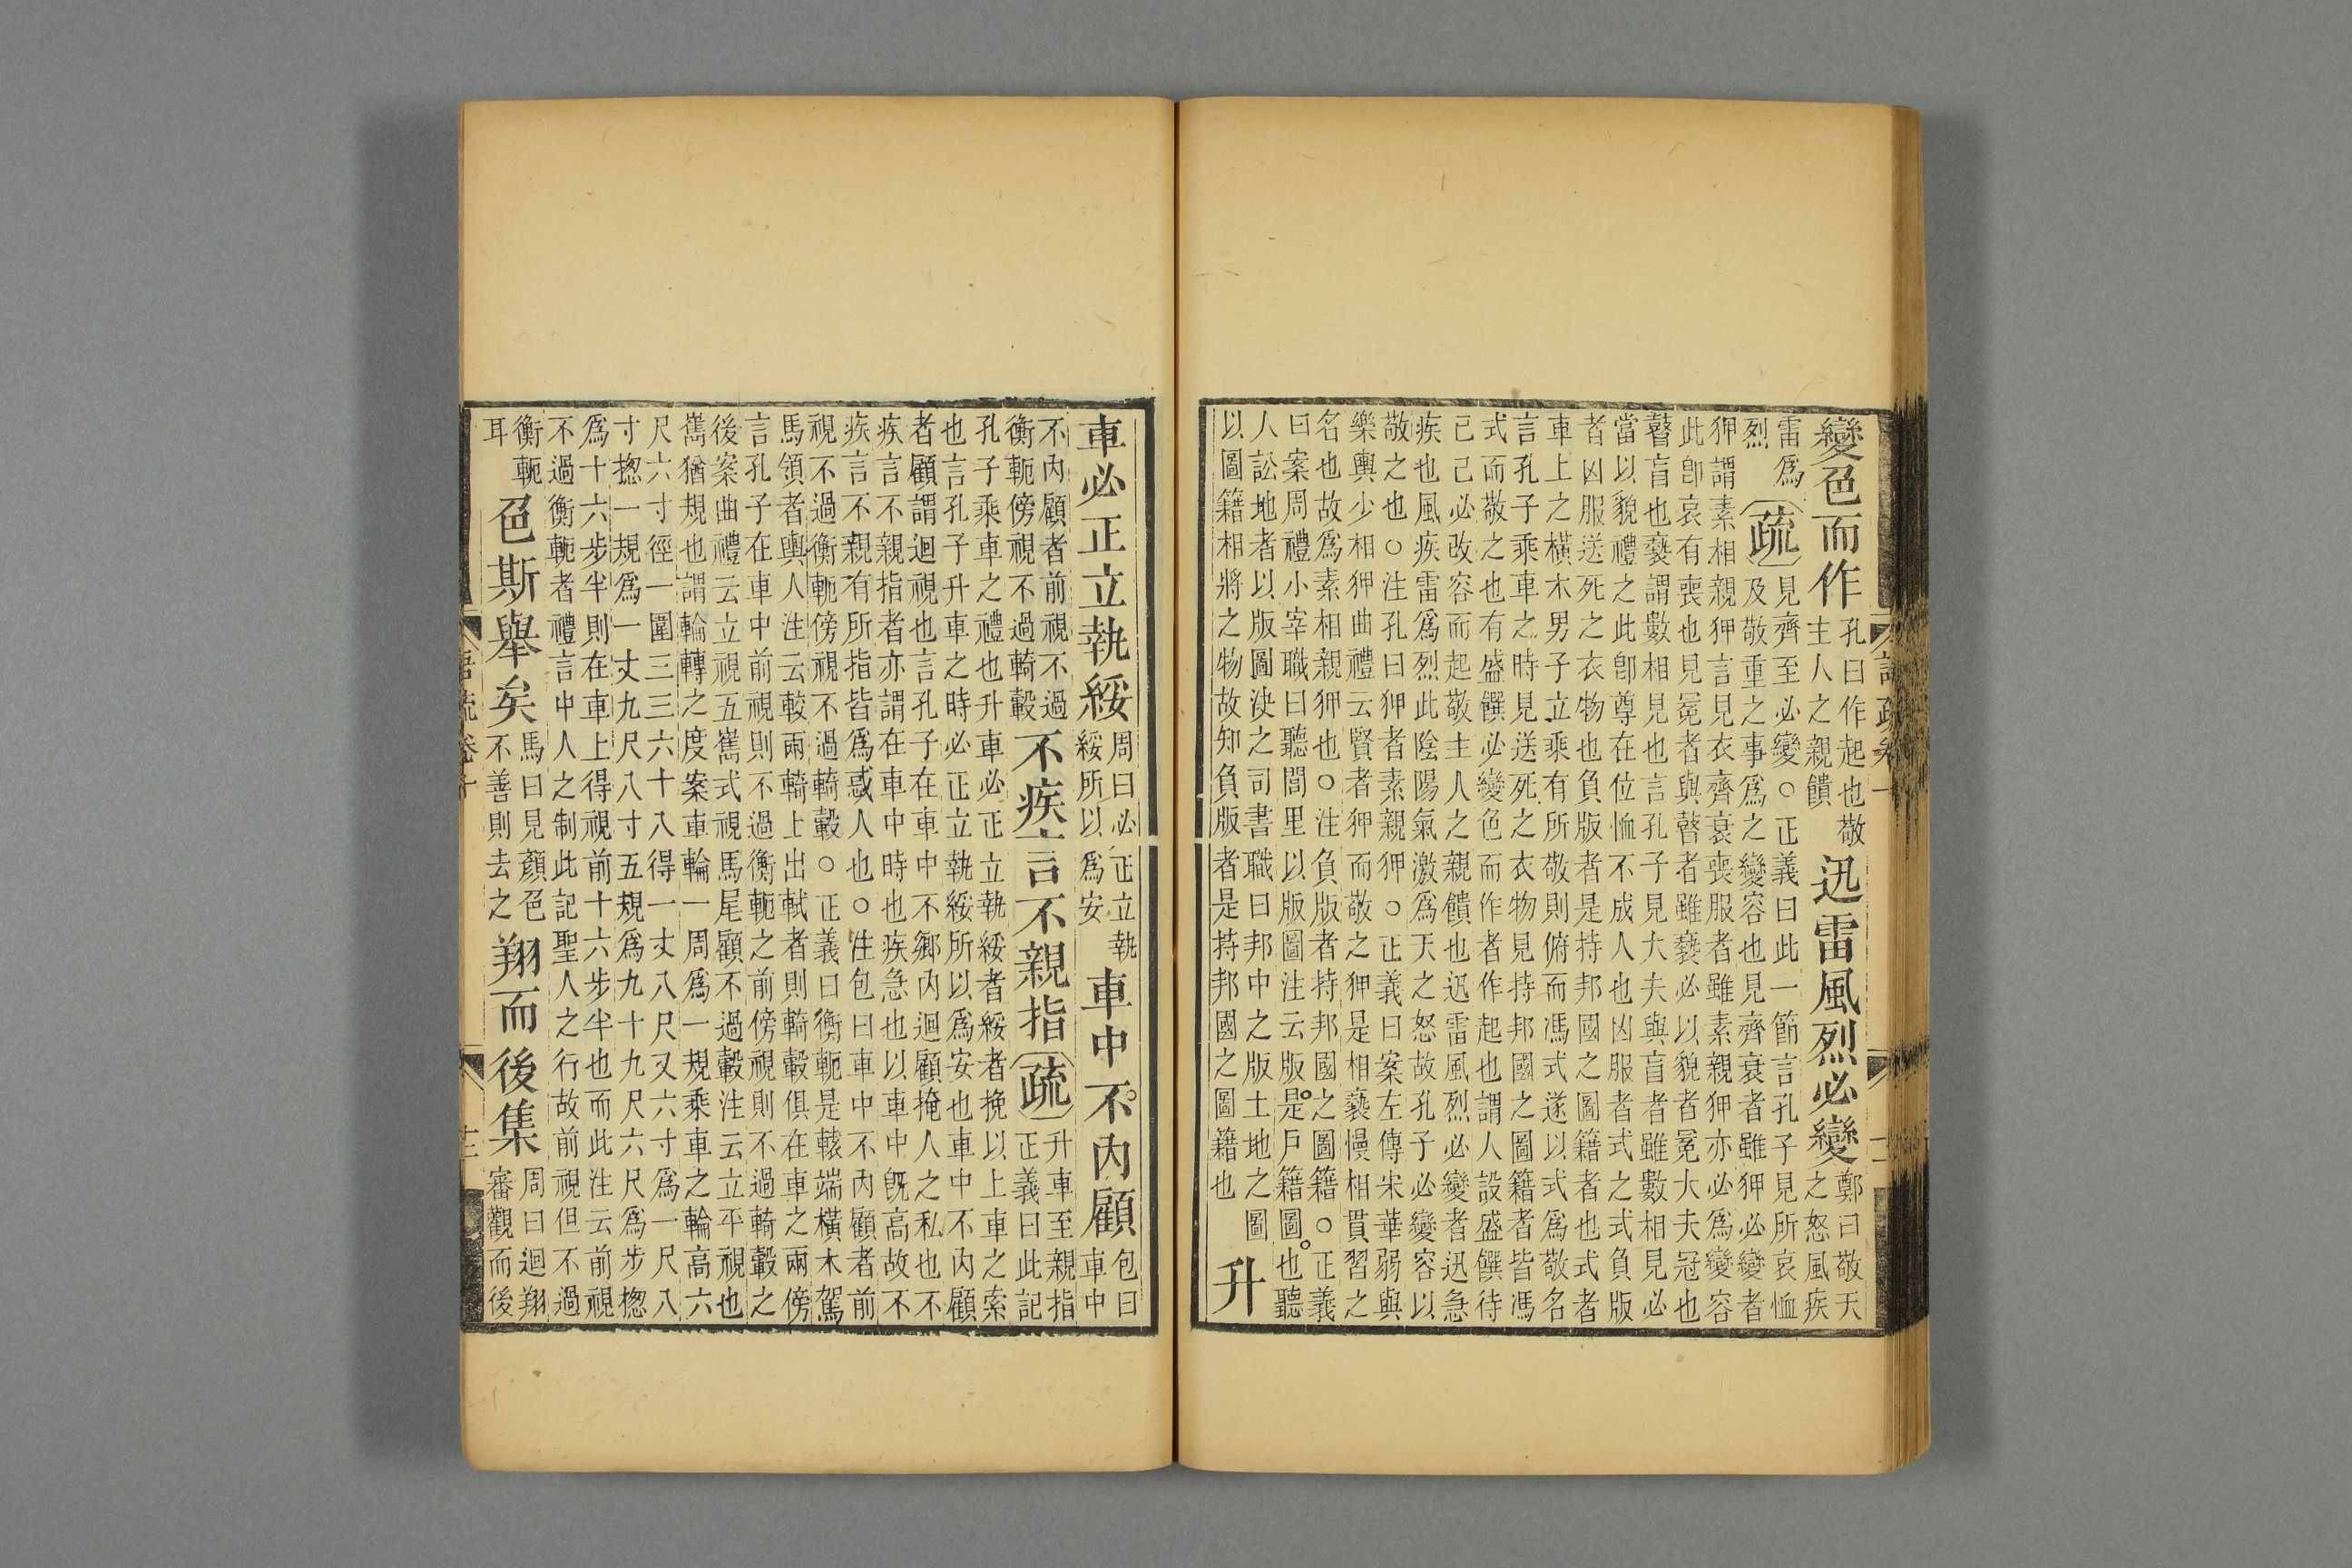 變色而作孔曰作起也敬主人之親饋迅雷風烈必變鄭曰敬天之怒風疾
雷爲烈疏見齊至必變○正義曰此一節言孔子見所哀恤及敬重之事爲之變容也見齊衰者雖狎必變者
狎謂素相親狎言見衣齊衰喪服者雖素親狎亦必爲變容
此卽哀有喪也見冕者與瞽者雖褻必以貌者冕大夫冠也
瞽盲也褻謂數相見也言孔子見大夫與盲者雖數相見必
當以貌禮之此卽尊在位恤不成人也凶服者式之式負版
者凶服送死之衣物也負版者是持邦國之圖籍者也式者
車上之橫木男子立乘有所敬則俯而馮式遂以式爲敬名
言孔子乘車之時見送死之衣物見持邦國之圖籍者皆馮
式而敬之也有盛饌必變色而作者作起也謂人設盛饌待
己己必改容而起敬主人之親饋也迅雷風烈必變者迅急
疾也風疾雷爲烈此陰陽氣激爲天之怒故孔子必變容以
敬之也○注孔曰狎者素親狎○正義曰案左傳宋華弱與
樂輿少相狎曲禮云賢者狎而敬之狎是相褻慢相貫習之
名也故爲素相親狎也○注負版者持邦國之圖籍○正義
曰案周禮小宰職曰聽閭里以版圖注云版是戶籍圖也聽
人訟地者以版圖決之司書職曰邦中之版土地之圖
以圖籍相將之物故知負版者是持邦國之圖籍也升
車必正立執綏周曰必正立執綏所以爲安車中不內顧包曰車中
不內顧者前視不過衡軛傍視不過輢轂不疾言不親指疏升車至親指正義曰此記
孔子乘車之禮也升車必正立執綏者綏者挽以上車之索
也言孔子升車之時必正立執綏所以爲安也車中不內顧
者顧謂迴視也言孔子在車中不鄉內迴顧掩人之私也不
疾言不親指者亦謂在車中時也疾急也以車中旣高故不
疾言不親有所指皆爲惑人也○注包曰車中不內顧者前
視不過衡軛傍視不過輢轂○正義曰衡軛是轅端橫木駕
馬領者輿人注云較兩輢上出軾者則輢轂俱在車之兩傍
言孔子在車中前視則不過衡軛之前傍視則不過輢轂之
後案曲禮云立視五巂式視馬尾顧不過轂注云立平視也
巂猶規也謂輪轉之度案車輪一周爲一規乘車之輪高六
尺六寸徑一圍三三六十八得一丈八尺又六寸爲一尺八
寸摠一規爲一丈九尺八寸五規爲九十九尺六尺爲步摠
爲十六步半則在車上得視前十六步半也而此注云前視
不過衡軛者禮言中人之制此記聖人之行故前視但不過
衡軛耳色斯舉矣馬曰見顏色不善則去之翔而後集周曰迴翔審觀而後